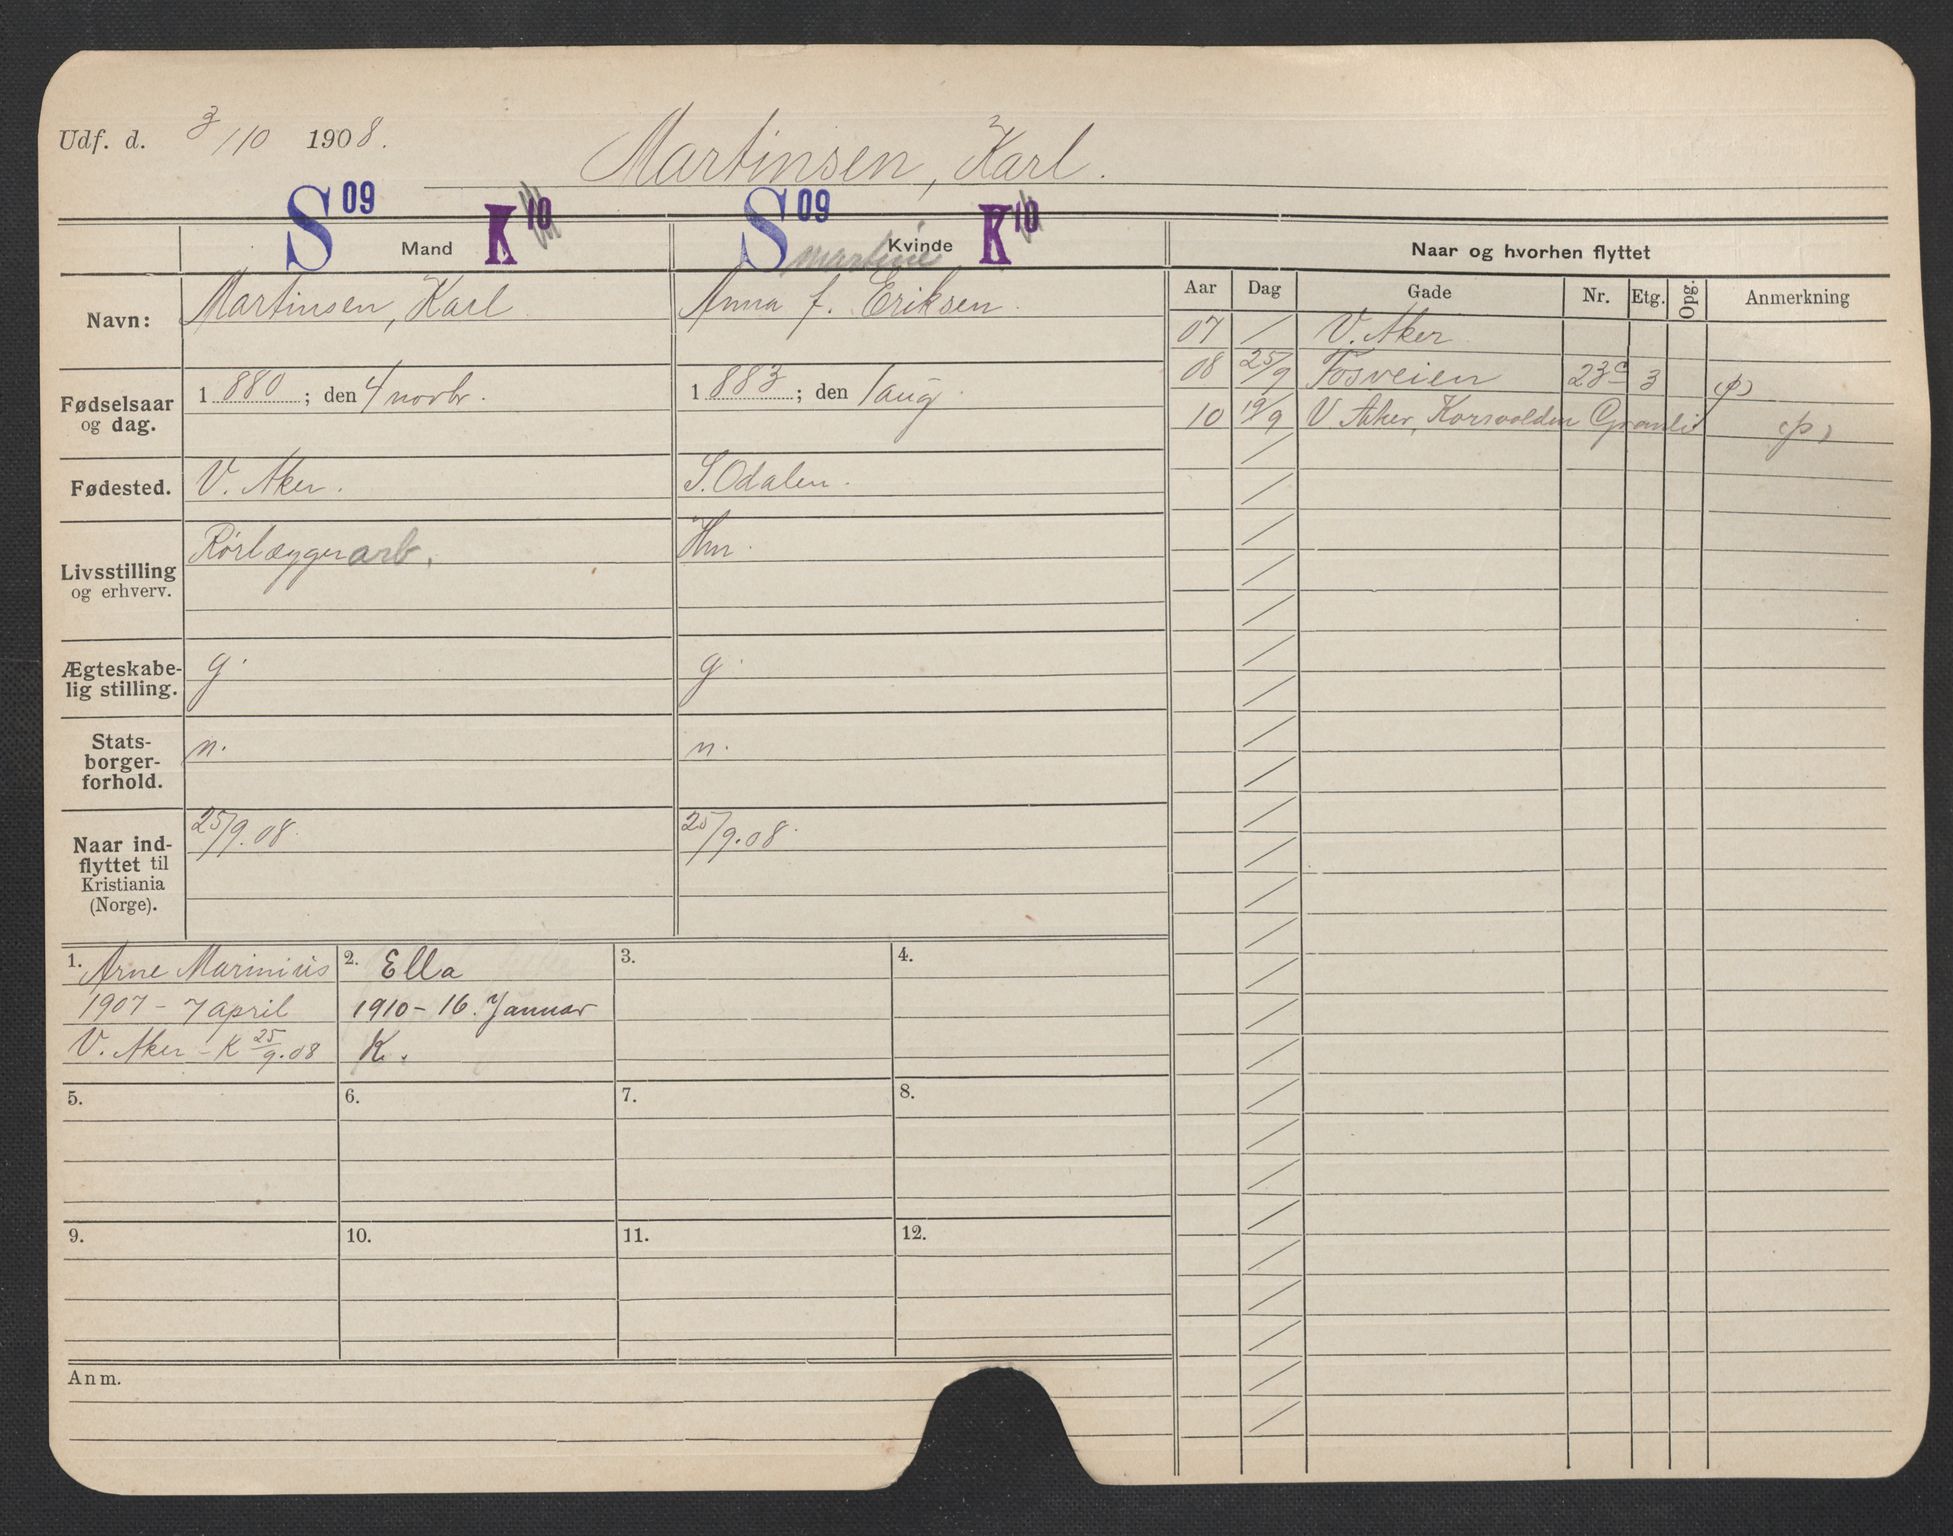 Udf. d. 3/10 1908.
Martinsen, Karl.
S 09 Mand K 10
S 09 Kvinde K 10
Naar og hvorhen flyttet
martine
Navn: Martinsen, Karl
Anna f. Eriksen.
Fødselsaar og dag. 1880; den 4 novbr.
1883; den 1 aug.
Fødested. V. Aker.
S. Odalen.
Livsstilling og erhverv. Rørlæggerarb.
Hm.
Ægteskabe-
lig stilling. g.
g.
Stats-
borger-
forhold. n.
n.
Naar ind-
flyttet til
Kristiania
(Norge). 25/9.08.
25/9.08.
Aar Dag Gade Nr. Etg. Opg. Anmerkning
07 / V. Aker
08 25/9 Fosveien 23c 3 (p)
10 19/9 V. Aker, Korsvolden Granli (p)
1. Arne Marinius
1907 - 7 april
V. Aker - K 25/9.08
2. Ella
1910 - 16. Januar
K.
3.
4.
5.
6.
7.
8.
9.
10.
11.
12.
Anm.